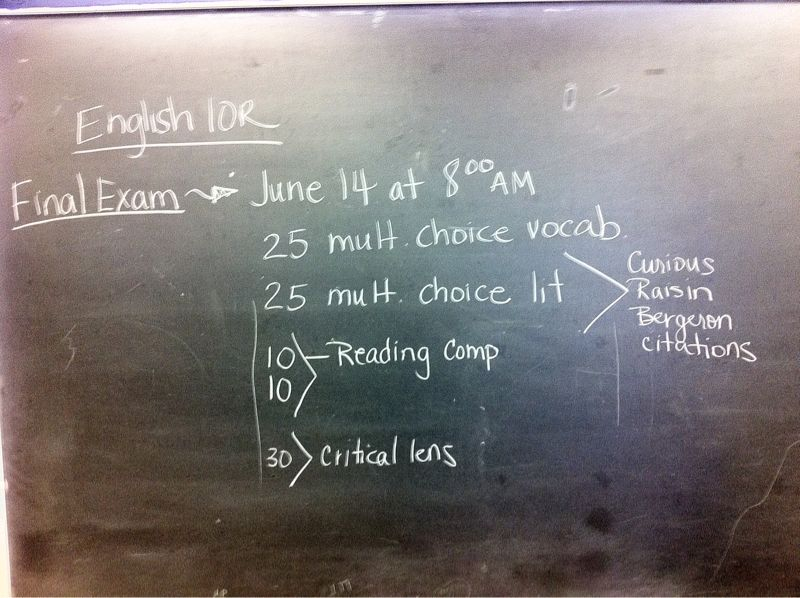 English 10R
Final Exam → June 14 at 8⁰⁰ AM
25 mult. choice vocab.
25 mult. choice lit
Curious
Raisin
Bergeron
citations
10 Reading Comp
10
30 Critical lens